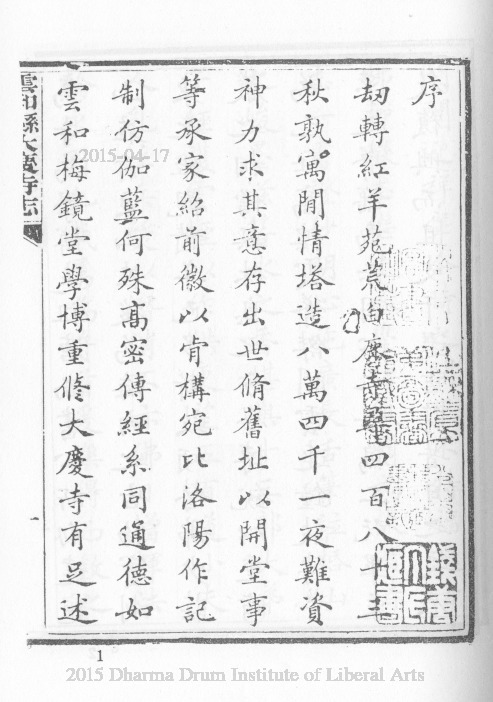 序
劫轉紅羊苑荒白鹿寺四百八十三
秋孰寓閒情塔造八萬四千一夜難資
神力求其意存出世脩舊址以開堂事
等承家紹前徽以肯構宛比洛陽作記
制仿伽藍何殊高密傳經系同通德如
雲和梅鏡堂學博重修大慶寺有足述
雲和縣大慶寺志
一
2015-04-17
1
2015 Dharma Drum Institute of Liberal Arts